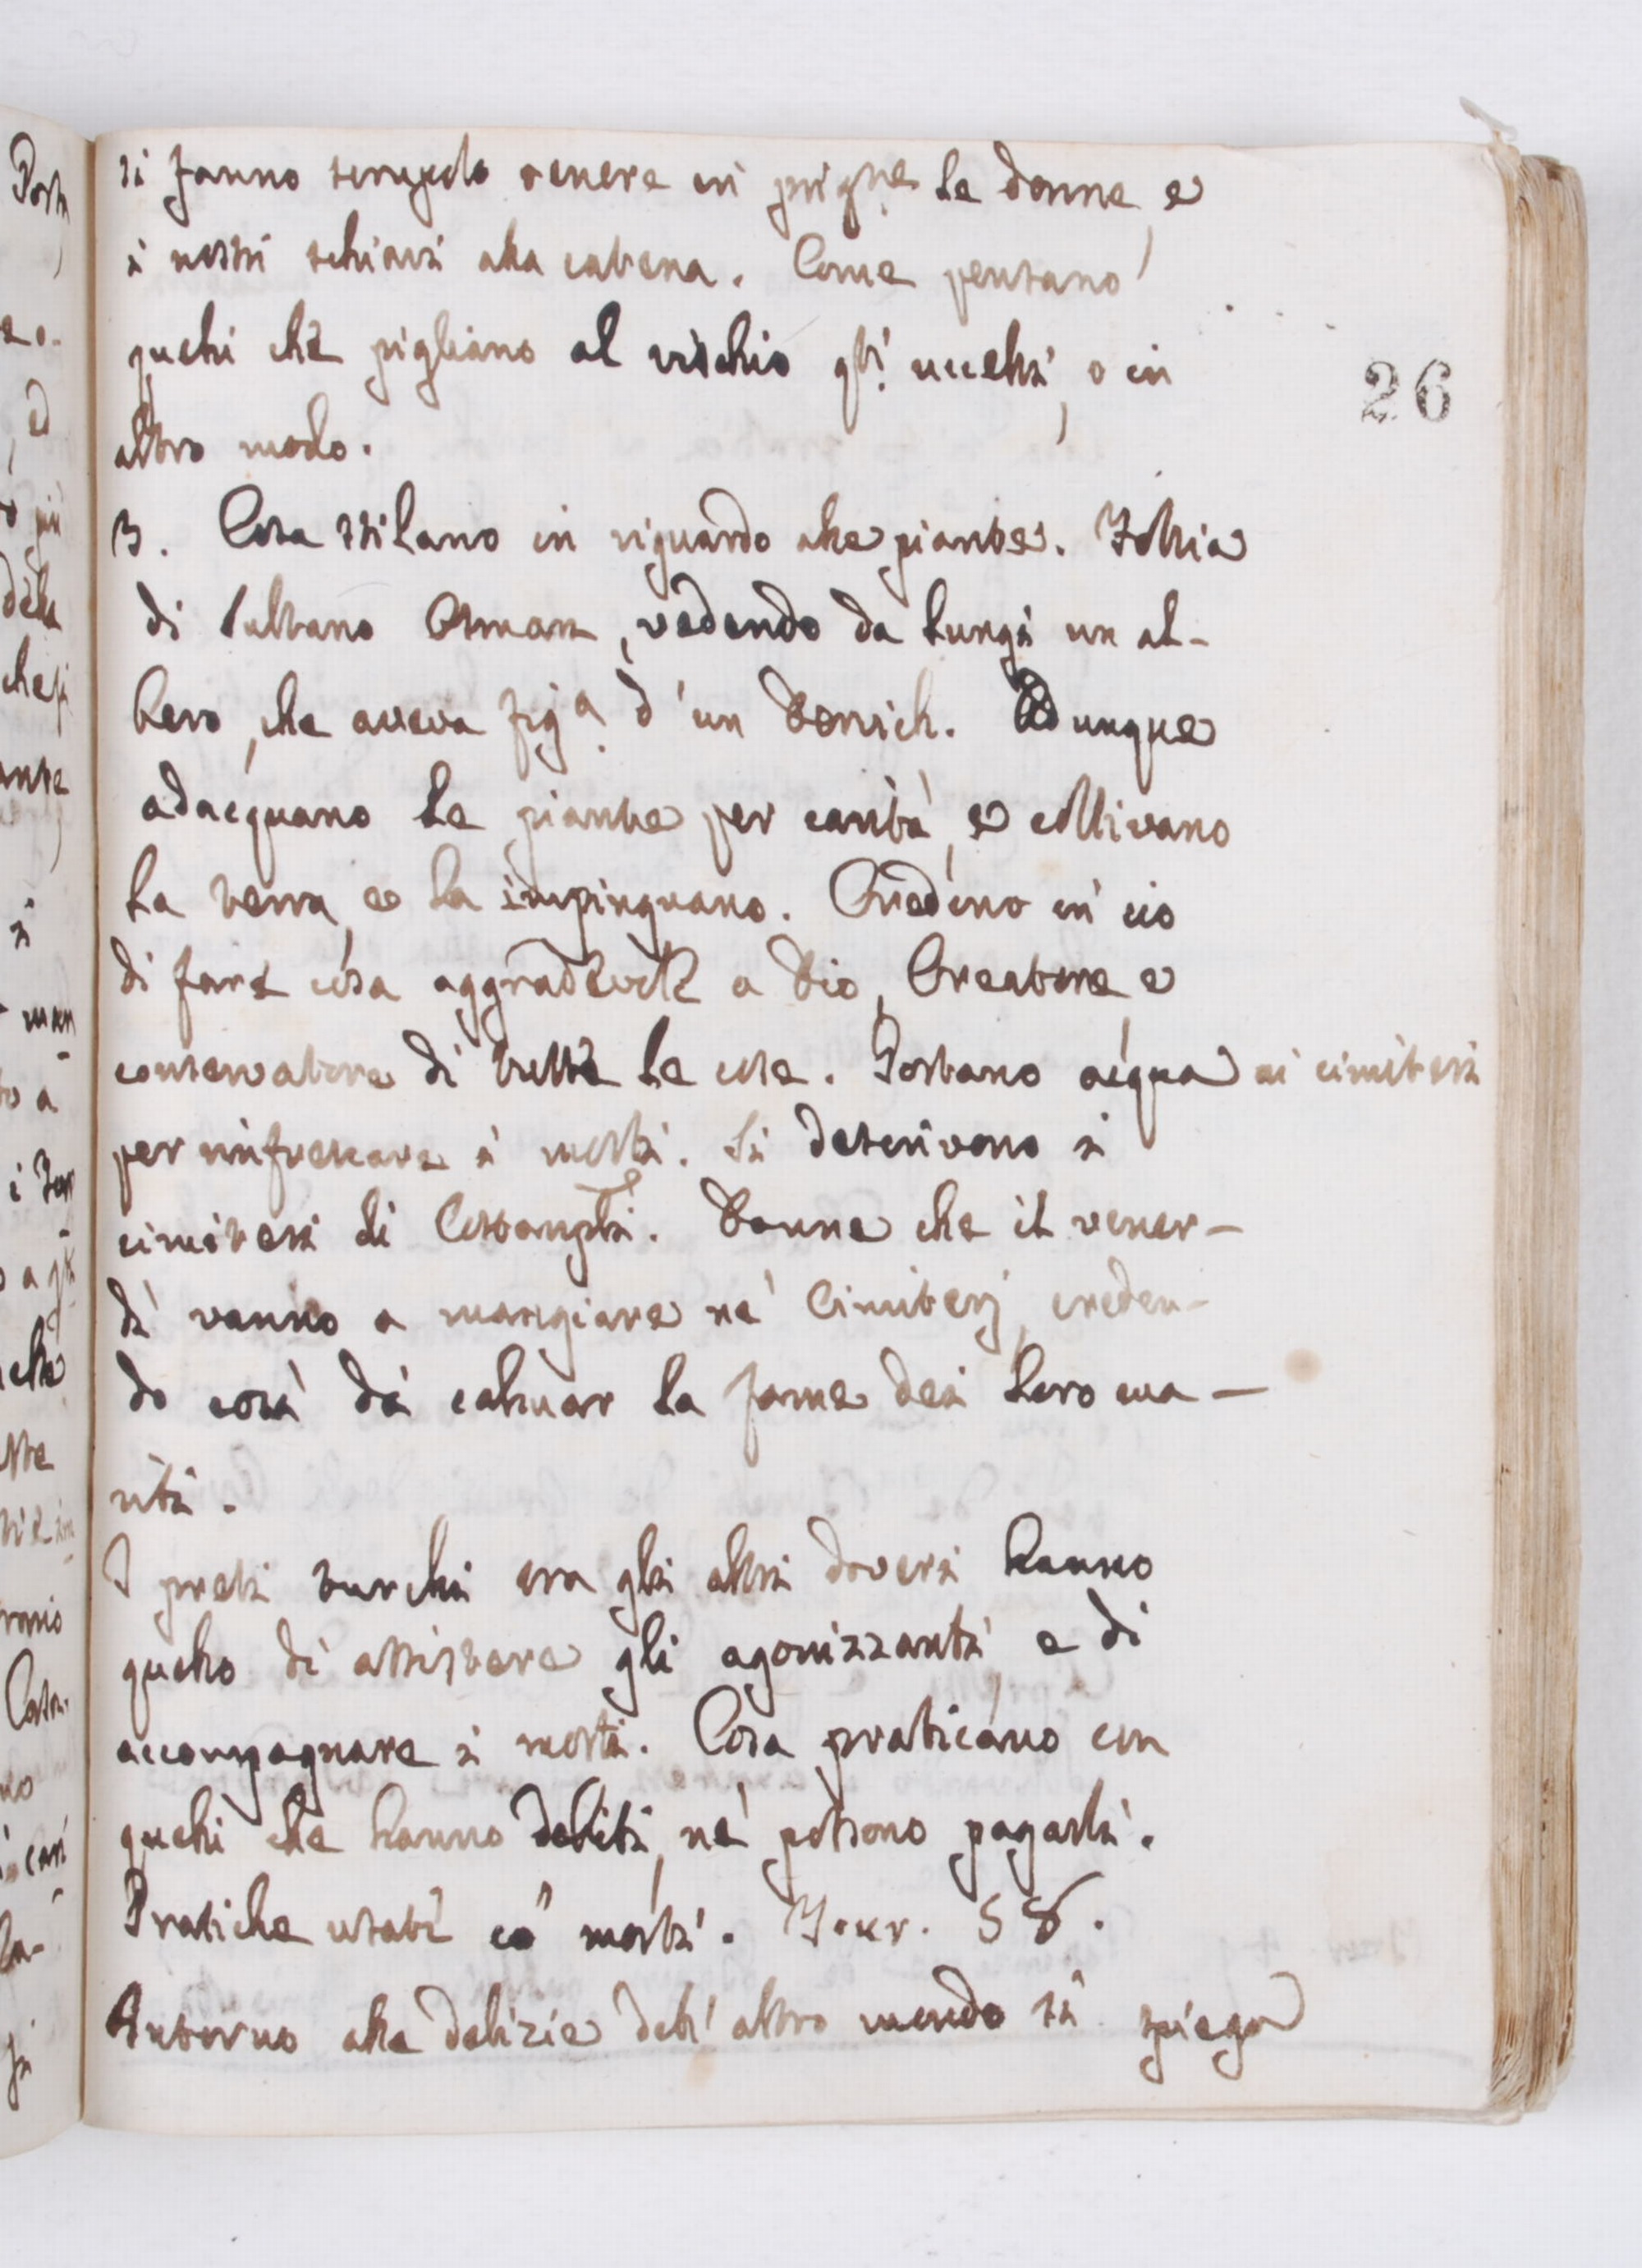 si fanno scrupolo tenere in prig.ne le donne, e
i nostri schiavi alla catena. Come pensano
quelli che pigliano al vischio gli uccelli, o in
altro modo.
3. Cosa stilano in riguardo alle piante. Follia
di Sultano Osman, vedendo da lungi un al-
bero, che aveva fig.a d'un Dervich. Adunque
adacquano le piante per carità, e coltivano
la terra, e la impinguano. Credono in ciò
di fare cosa aggradevole a Dio, Creatore e
conservatore di tutte le cose. Portano acqua ai cimiteri
per rinfrescare i morti. Si descrivono i
cimiteri di Costanpli. Donne che il vener-
dì vanno a mangiare ne' Cimiterj, creden-
do così di calmar la fame dei loro ma-
riti.
I preti turchi tra gli altri doveri hanno
quello di assistere gli agonizzanti, e di
accompagnare i morti. Cosa praticano con
quelli che hanno debiti, né possono pagarli.
Pratiche usate co' morti. 58.
Intorno alle delizie dell'altro mondo si spiega
26